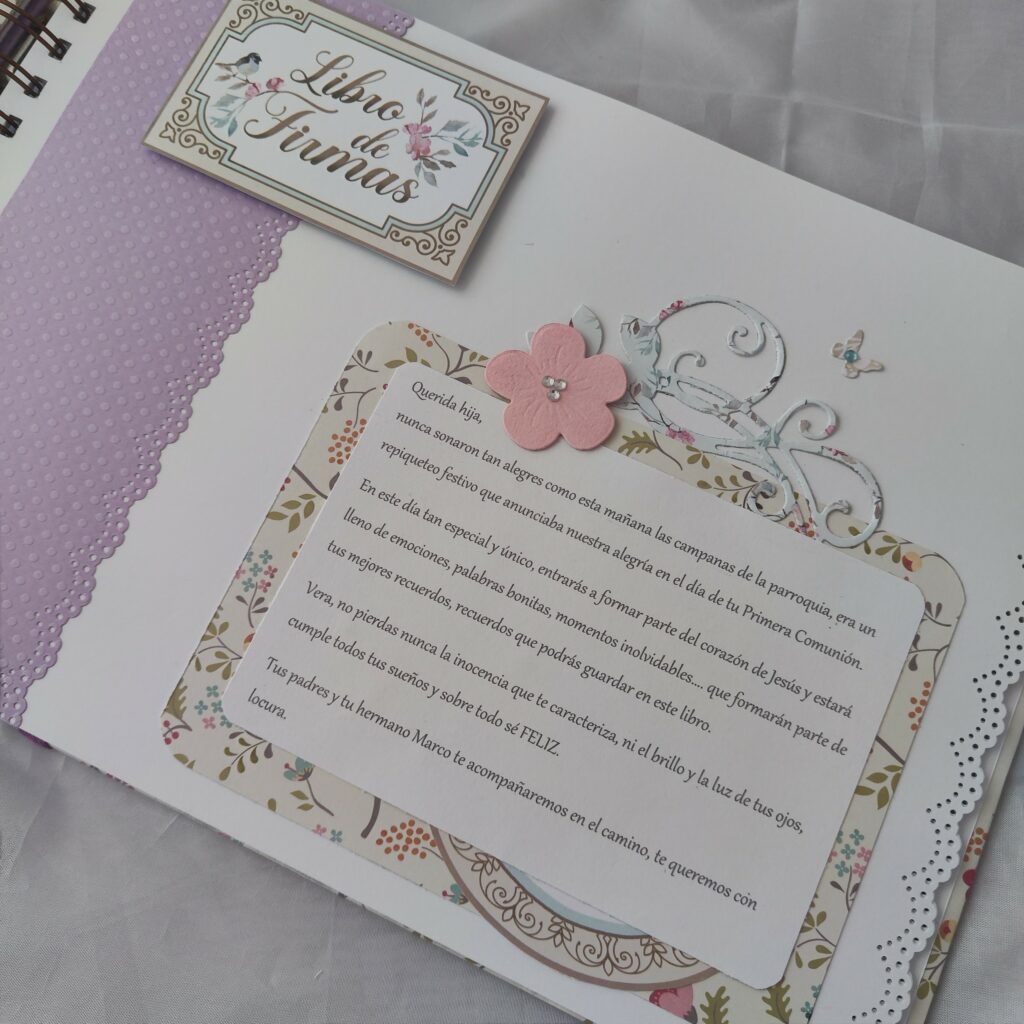 Libro
de
Firmas
Querida hija,
nunca sonaron tan alegres como esta mañana las campanas de la parroquia, era un
repiqueteo festivo que anunciaba nuestra alegría en el día de tu Primera Comunión.
En este día tan especial y único, entrarás a formar parte del corazón de Jesús y estará
lleno de emociones, palabras bonitas, momentos inolvidables.... que formarán parte de
tus mejores recuerdos, recuerdos que podrás guardar en este libro.
Vera, no pierdas nunca la inocencia que te caracteriza, ni el brillo y la luz de tus ojos,
cumple todos tus sueños y sobre todo sé FELIZ.
Tus padres y tu hermano Marco te acompañaremos en el camino, te queremos con
locura.